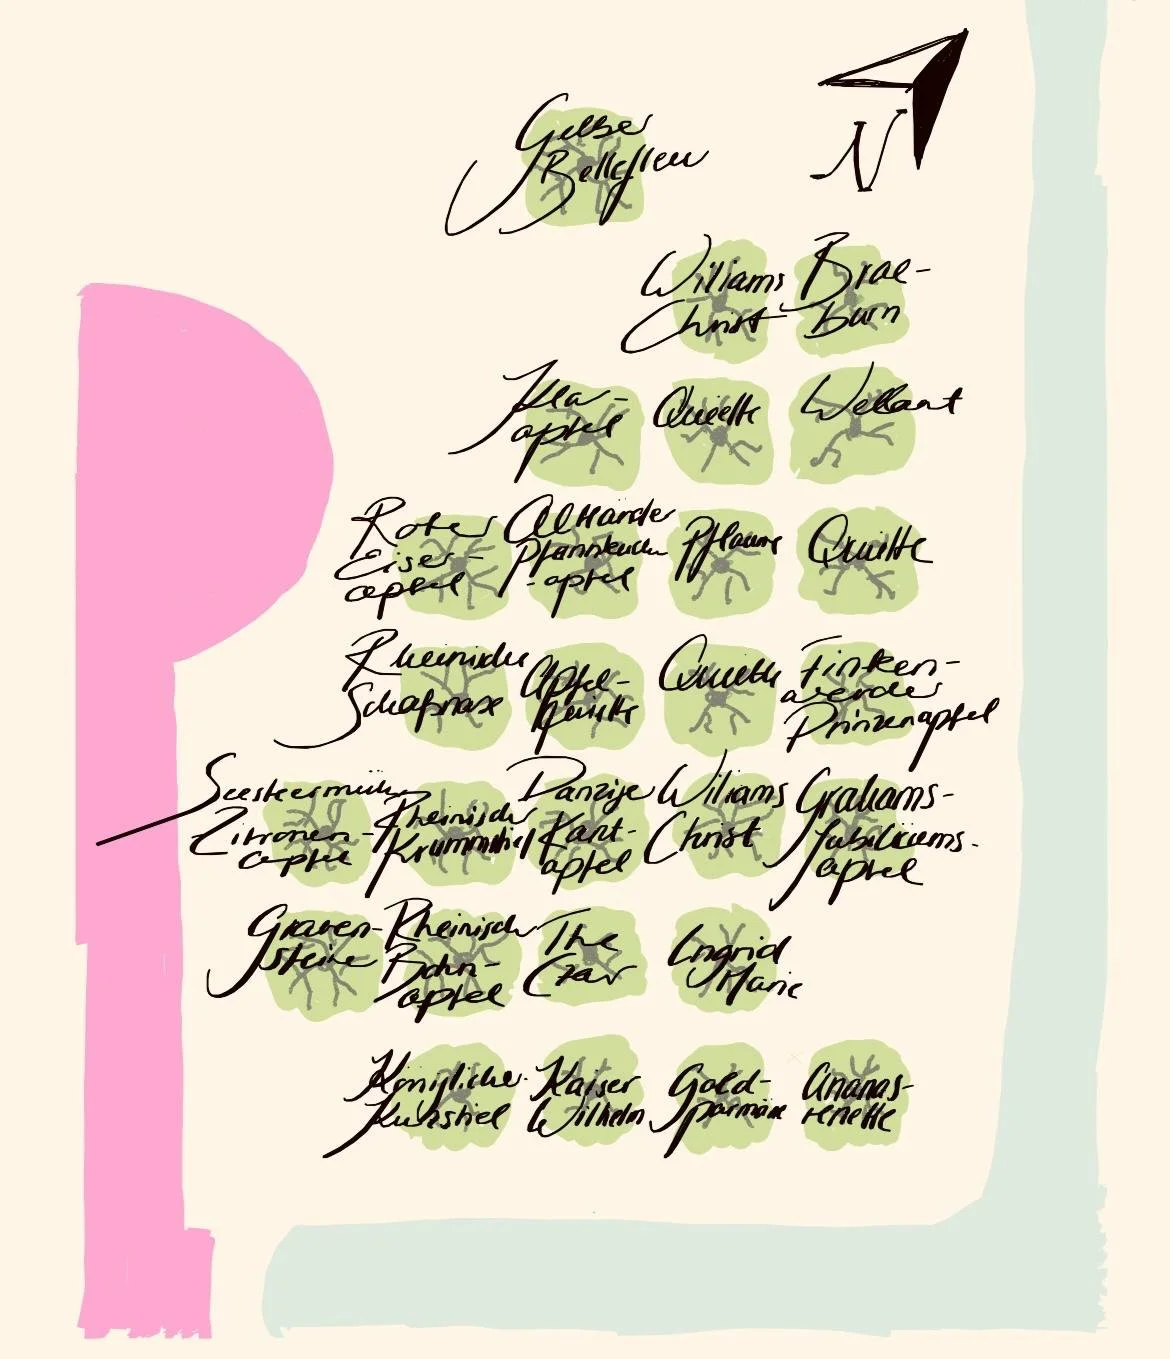 Gelber
Bellefleur
N
Wiliams
Christ
Brae-
burn
apfel
Quitte
Wellant
Roter
Eiser-
apfel
Altländer
Pfannkuchen
-apfel
Pflaume
Quitte
Rheinische
Schafsnase
Apfel-
quitte
Quitte
Finken-
werder
Prinzenapfel
Seestermüher
Zitronen-
apfel
Rheinischer
Krummstiel
Danziger
Kant-
apfel
Wiliams
Christ
Grahams-
Jubiläums-
apfel
Graven-
steiner
Rheinischer
Bohn-
apfel
The
Czar
Ingrid
Marie
Königlicher
Kurzstiel
Kaiser
Wilhelm
Gold-
parmäne
Ananas-
renette